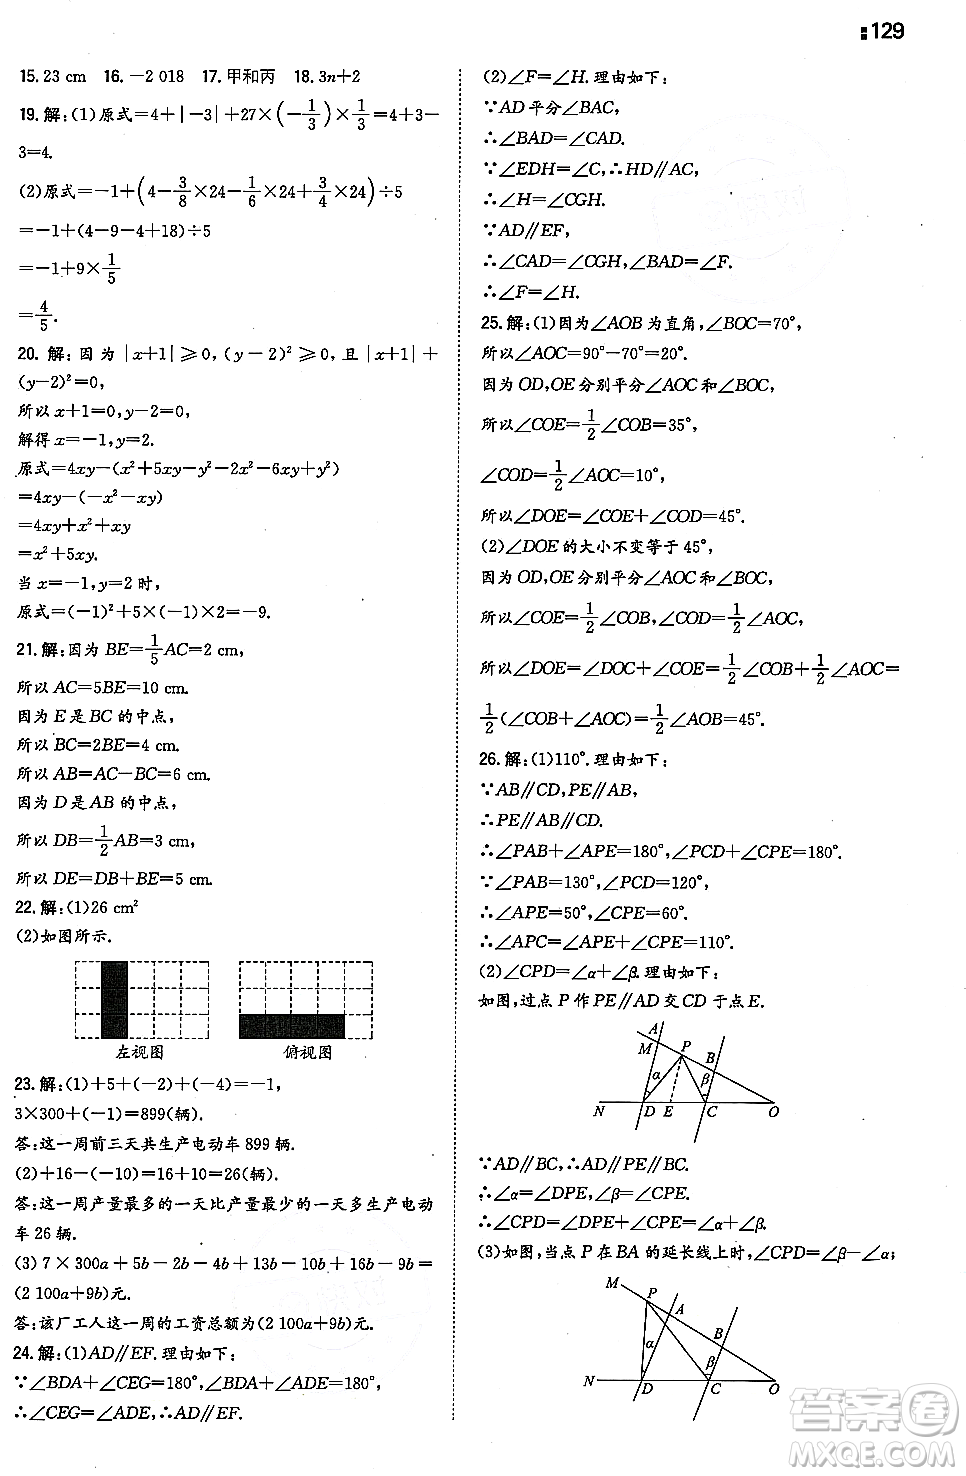 129
15. 23 cm 16. －2 018 17. 甲和丙 18. 3n＋2
19. 解:(1)原式＝4＋|－3|＋27×(－1/3)×1/3＝4＋3－
3＝4.
(2)原式＝－1＋(4－3/8×24－1/6×24＋3/4×24)÷5
＝－1＋(4－9－4＋18)÷5
＝－1＋9×1/5
＝4/5.
20. 解:因为|x＋1|⩾0,(y－2)²⩾0,且|x＋1|＋
(y－2)²＝0,
所以x＋1＝0,y－2＝0,
解得x＝－1,y＝2.
原式＝4xy－(x²＋5xy－y²－2x²－6xy＋y²)
＝4xy－(－x²－xy)
＝4xy＋x²＋xy
＝x²＋5xy.
当x＝－1,y＝2时,
原式＝(－1)²＋5×(－1)×2＝－9.
21. 解:因为BE＝1/5AC＝2 cm,
所以AC＝5BE＝10 cm.
因为E是BC的中点,
所以BC＝2BE＝4 cm.
所以AB＝AC－BC＝6 cm.
因为D是AB的中点,
所以DB＝1/2AB＝3 cm.
所以DE＝DB＋BE＝5 cm.
22. 解:(1)26 cm²
(2)如图所示.
左视图 俯视图
23. 解:(1)＋5＋(－2)＋(－4)＝－1,
3×300＋(－1)＝899(辆).
答:这一周前三天共生产电动车899辆.
(2)＋16－(－10)＝16＋10＝26(辆).
答:这一周产量最多的一天比产量最少的一天多生产电动
车26辆.
(3)7×300a＋5b－2b－4b＋13b－10b＋16b－9b＝
(2 100a＋9b)元.
答:该厂工人这一周的工资总额为(2 100a＋9b)元.
24. 解:(1)AD∥EF.理由如下:
∵∠BDA＋∠CEG＝180°,∠BDA＋∠ADE＝180°,
∴∠CEG＝∠ADE,∴AD∥EF.
(2)∠F＝∠H.理由如下:
∵AD平分∠BAC,
∴∠BAD＝∠CAD.
∵∠EDH＝∠C,∴HD∥AC,
∴∠H＝∠CGH.
∵AD∥EF,
∴∠CAD＝∠CGH,∠BAD＝∠F.
∴∠F＝∠H.
25. 解:(1)因为∠AOB为直角,∠BOC＝70°,
所以∠AOC＝90°－70°＝20°.
因为OD,OE分别平分∠AOC和∠BOC,
所以∠COE＝1/2∠COB＝35°,
∠COD＝1/2∠AOC＝10°.
所以∠DOE＝∠COE＋∠COD＝45°.
(2)∠DOE的大小不变等于45°,
因为OD,OE分别平分∠AOC和∠BOC,
所以∠COE＝1/2∠COB,∠COD＝1/2∠AOC,
所以∠DOE＝∠DOC＋∠COE＝1/2∠COB＋1/2∠AOC＝
1/2(∠COB＋∠AOC)＝1/2∠AOB＝45°.
26. 解:(1)110°.理由如下:
∵AB∥CD,PE∥AB,
∴PE∥AB∥CD.
∴∠PAB＋∠APE＝180°,∠PCD＋∠CPE＝180°.
∵∠PAB＝130°,∠PCD＝120°,
∴∠APE＝50°,∠CPE＝60°.
∴∠APC＝∠APE＋∠CPE＝110°.
(2)∠CPD＝∠α＋∠β.理由如下:
如图,过点P作PE∥AD交CD于点E.
A
M P B
α β
N D E C O
∵AD∥BC,∴AD∥PE∥BC.
∴∠α＝∠DPE,∠β＝∠CPE.
∴∠CPD＝∠DPE＋∠CPE＝∠α＋∠β.
(3)如图,当点P在BA的延长线上时,∠CPD＝∠β－∠α;
M P A
B
α β
N D C O
答案圈
MXQE.COM